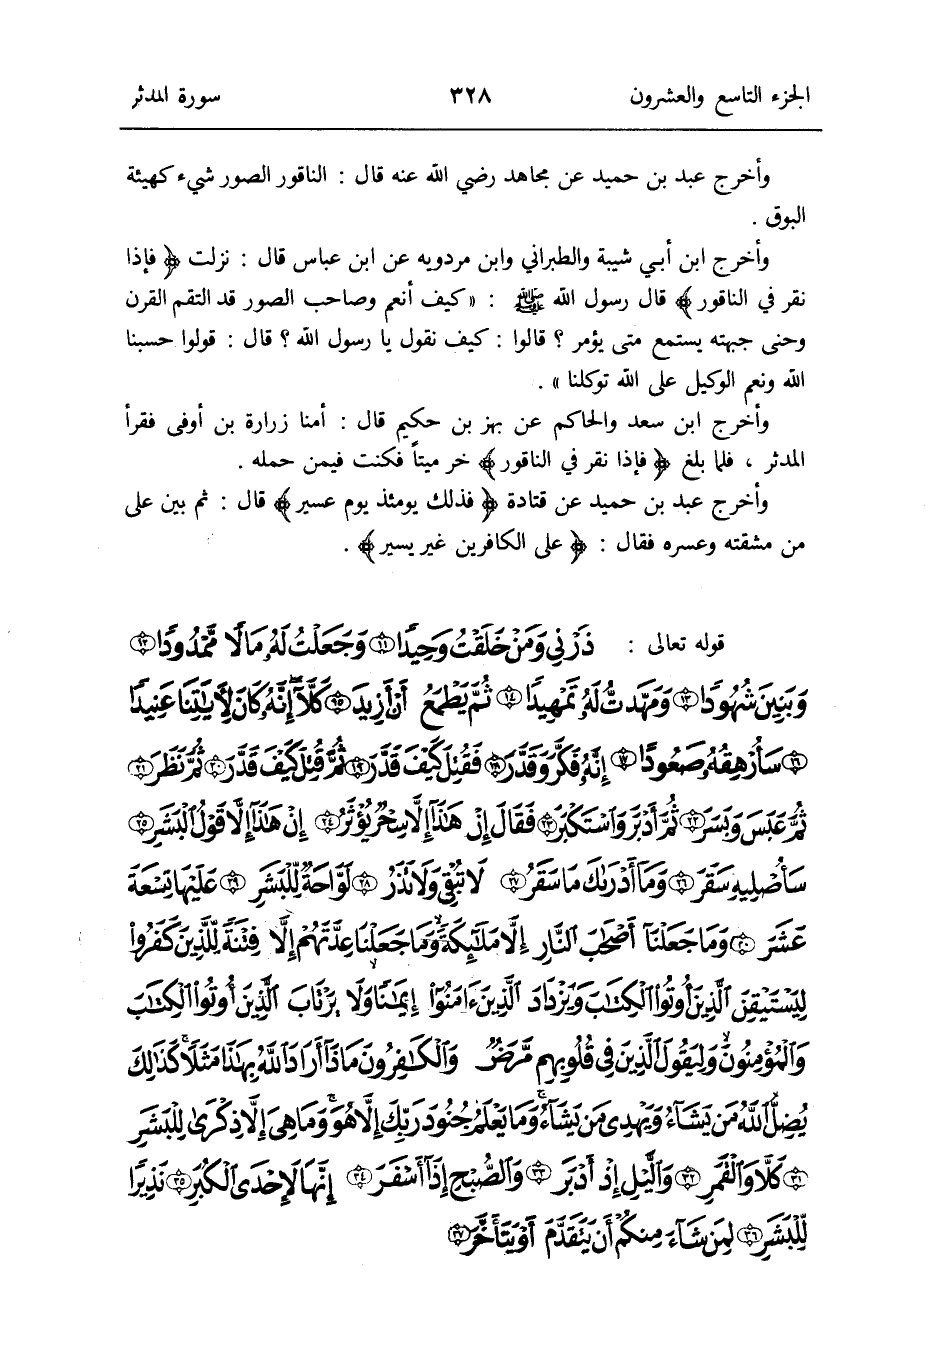 الجزء التاسع والعشرون ٣٢٨ سورة المدثر
وأخرج عبد بن حميد عن مجاهد رضي الله عنه قال : الناقور الصور شيء كهيئة
البوق .
وأخرج ابن أبي شيبة والطبراني وابن مردويه عن ابن عباس قال : نزلت ﴿ فإذا
نقر في الناقور ﴾ قال رسول الله ﷺ : « كيف أنعم وصاحب الصور قد التقم القرن
وحنى جبهته يستمع متى يؤمر ؟ قالوا : كيف نقول يا رسول الله ؟ قال : قولوا حسبنا
الله ونعم الوكيل على الله توكلنا » .
وأخرج ابن سعد والحاكم عن بهز بن حكيم قال : أمنا زرارة بن أوفى فقرأ
المدثر ، فلما بلغ ﴿ فإذا نقر في الناقور ﴾ خر ميتاً فكنت فيمن حمله .
وأخرج عبد بن حميد عن قتادة ﴿ فذلك يومئذ يوم عسير ﴾ قال : ثم بين على
من مشقته وعسره فقال : ﴿ على الكافرين غير يسير ﴾ .
قوله تعالى : ذَرْنِي وَمَنْ خَلَقْتُ وَحِيدًا ۝١١ وَجَعَلْتُ لَهُۥ مَالًا مَّمْدُودًا ۝١٢
وَبَنِينَ شُهُودًا ۝١٣ وَمَهَّدتُّ لَهُۥ تَمْهِيدًا ۝١٤ ثُمَّ يَطْمَعُ أَنْ أَزِيدَ ۝١٥ كَلَّآ إِنَّهُۥ كَانَ لِأَيَٰتِنَا عَنِيدًا
۝١٦ سَأُرْهِقُهُۥ صَعُودًا ۝١٧ إِنَّهُۥ فَكَّرَ وَقَدَّرَ ۝١٨ فَقُتِلَ كَيْفَ قَدَّرَ ۝١٩ ثُمَّ قُتِلَ كَيْفَ قَدَّرَ ۝٢٠ ثُمَّ نَظَرَ ۝٢١
ثُمَّ عَبَسَ وَبَسَرَ ۝٢٢ ثُمَّ أَدْبَرَ وَٱسْتَكْبَرَ ۝٢٣ فَقَالَ إِنْ هَٰذَآ إِلَّا سِحْرٌ يُؤْثَرُ ۝٢٤ إِنْ هَٰذَآ إِلَّا قَوْلُ ٱلْبَشَرِ ۝٢٥
سَأُصْلِيهِ سَقَرَ ۝٢٦ وَمَآ أَدْرَىٰكَ مَا سَقَرُ ۝٢٧ لَا تُبْقِي وَلَا تَذَرُ ۝٢٨ لَوَّاحَةٌ لِّلْبَشَرِ ۝٢٩ عَلَيْهَا تِسْعَةَ
عَشَرَ ۝٣٠ وَمَا جَعَلْنَآ أَصْحَٰبَ ٱلنَّارِ إِلَّا مَلَٰٓئِكَةً وَمَا جَعَلْنَا عِدَّتَهُمْ إِلَّا فِتْنَةً لِّلَّذِينَ كَفَرُوا۟
لِيَسْتَيْقِنَ ٱلَّذِينَ أُوتُوا۟ ٱلْكِتَٰبَ وَيَزْدَادَ ٱلَّذِينَ ءَامَنُوٓا۟ إِيمَٰنًا وَلَا يَرْتَابَ ٱلَّذِينَ أُوتُوا۟ ٱلْكِتَٰبَ
وَٱلْمُؤْمِنُونَ وَلِيَقُولَ ٱلَّذِينَ فِي قُلُوبِهِم مَّرَضٌ وَٱلْكَٰفِرُونَ مَاذَآ أَرَادَ ٱللَّهُ بِهَٰذَا مَثَلًا كَذَٰلِكَ
يُضِلُّ ٱللَّهُ مَن يَشَآءُ وَيَهْدِي مَن يَشَآءُ وَمَا يَعْلَمُ جُنُودَ رَبِّكَ إِلَّا هُوَ وَمَا هِيَ إِلَّا ذِكْرَىٰ لِلْبَشَرِ
۝٣١ كَلَّا وَٱلْقَمَرِ ۝٣٢ وَٱلَّيْلِ إِذْ أَدْبَرَ ۝٣٣ وَٱلصُّبْحِ إِذَآ أَسْفَرَ ۝٣٤ إِنَّهَا لَإِحْدَى ٱلْكُبَرِ ۝٣٥ نَذِيرًا
لِّلْبَشَرِ ۝٣٦ لِمَن شَآءَ مِنكُمْ أَن يَتَقَدَّمَ أَوْ يَتَأَخَّرَ ۝٣٧